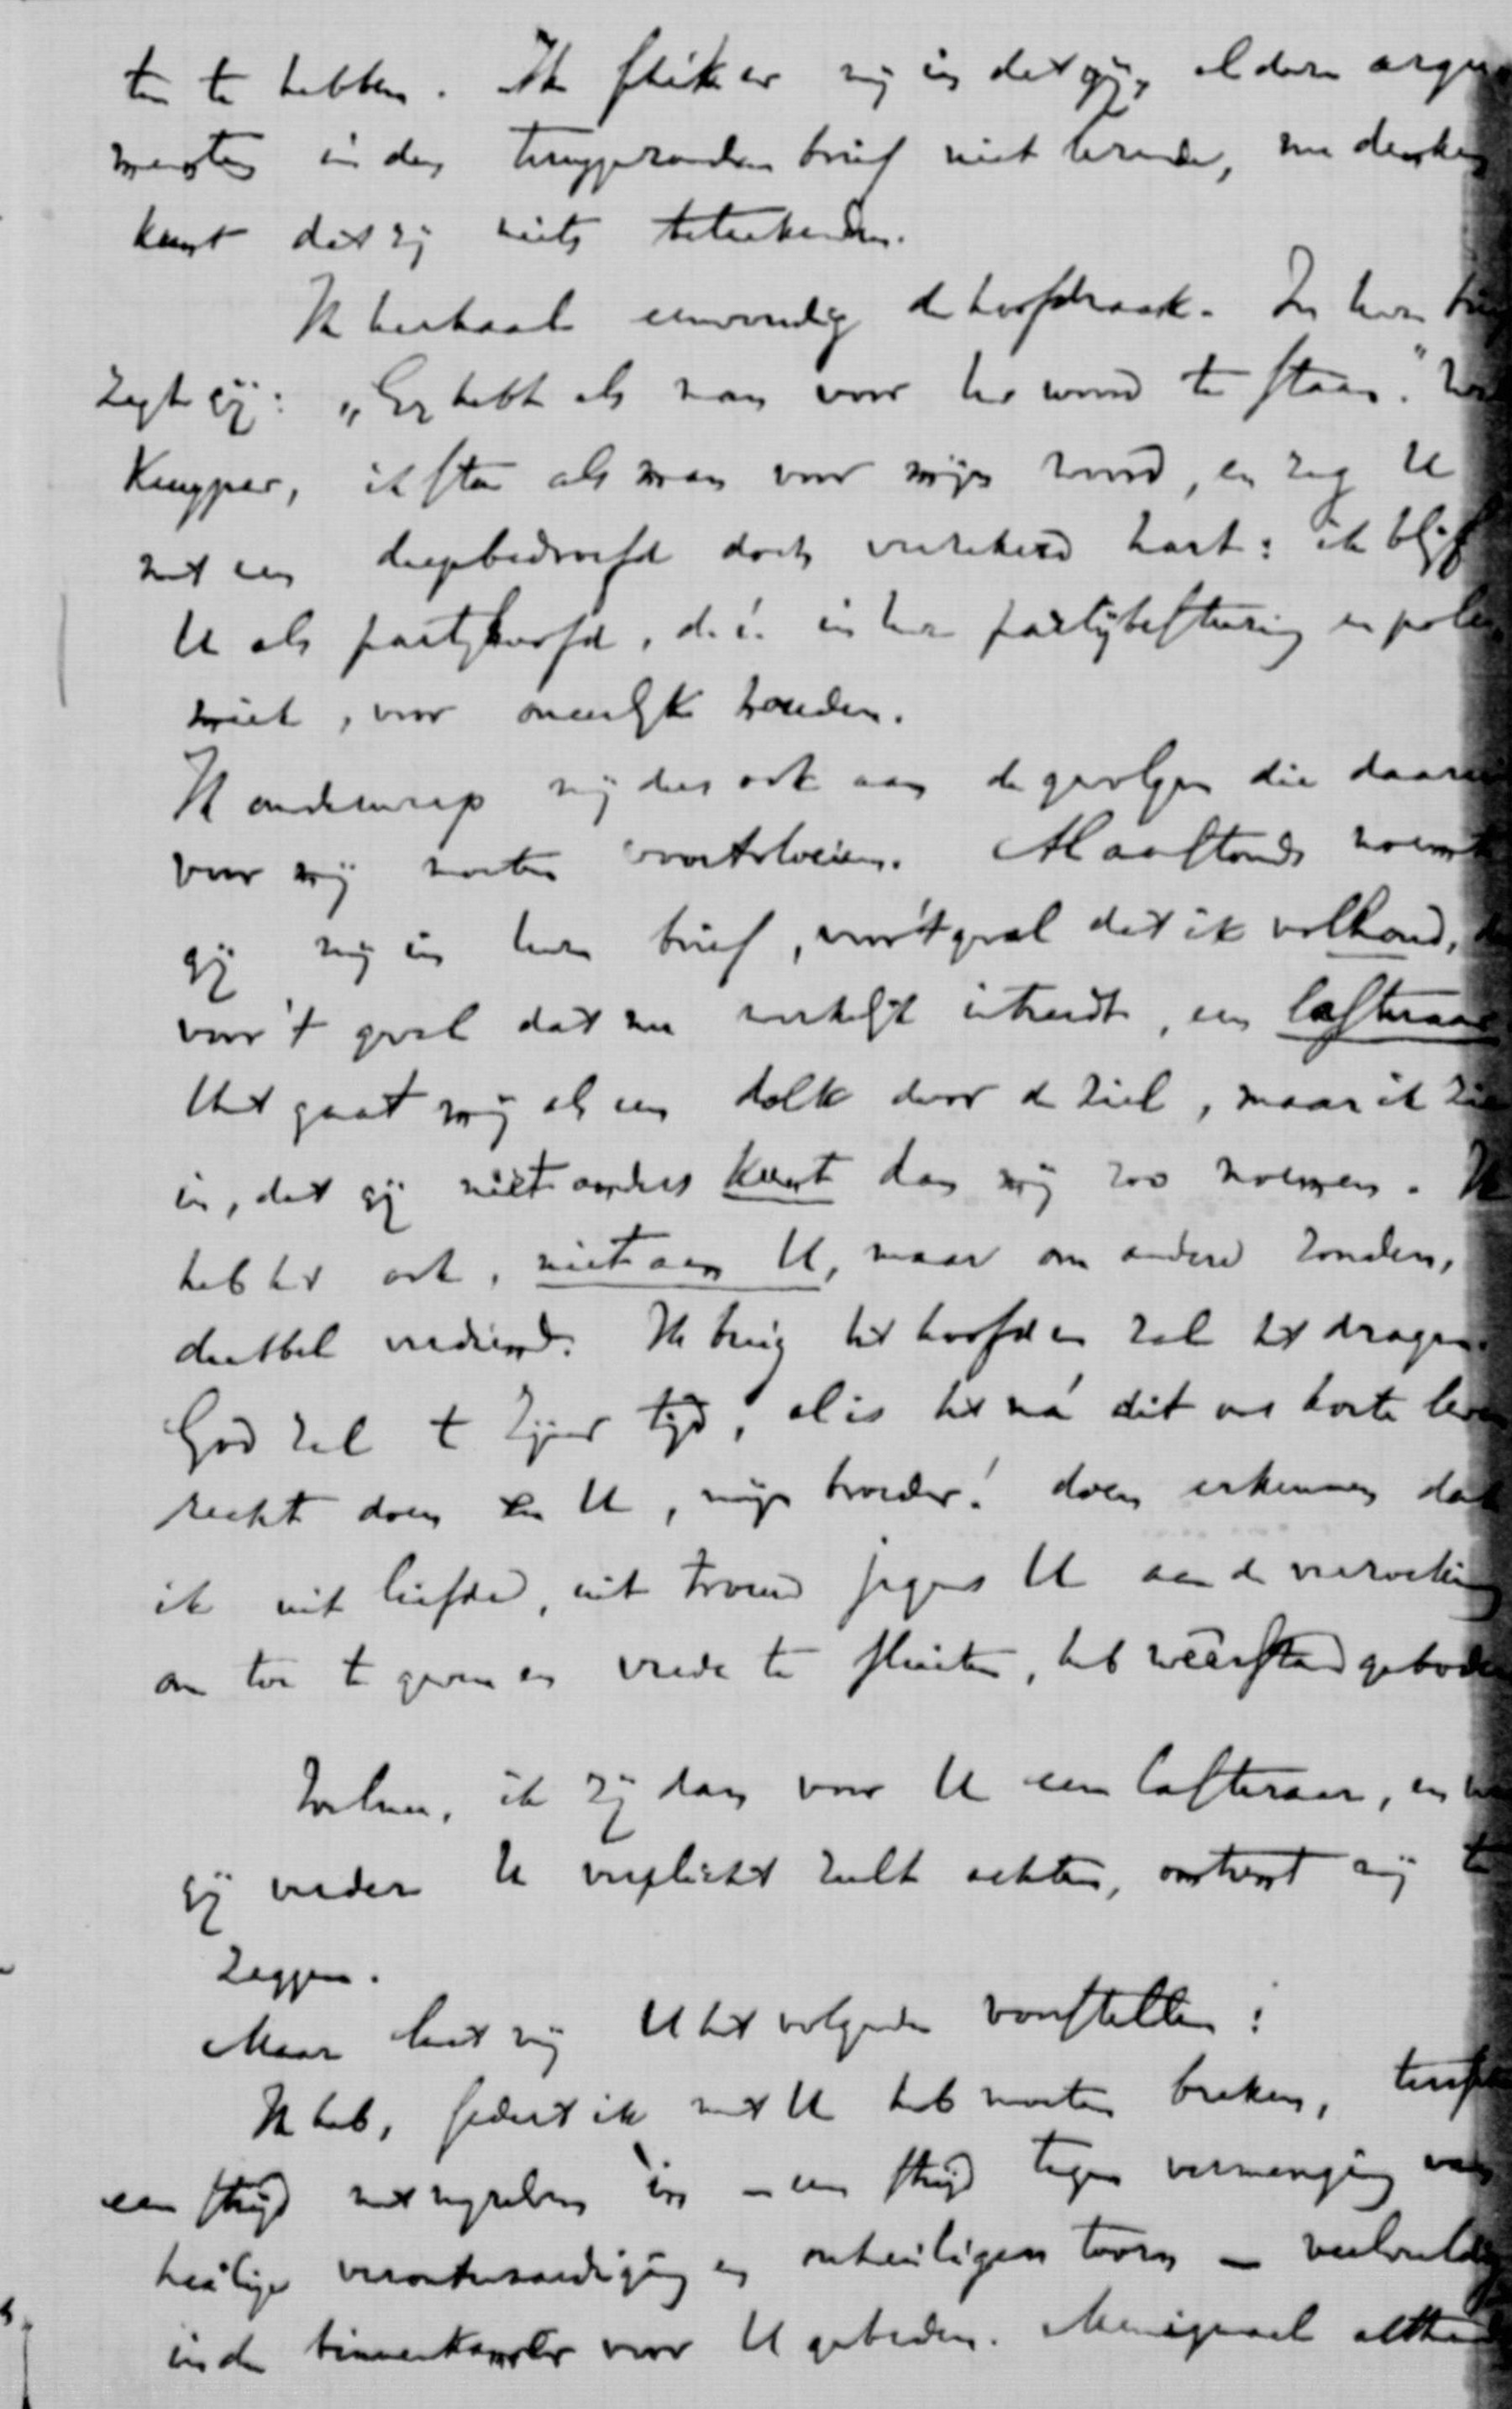 ten te hebben. Ik stel er mij in dat gij, al deze argu
menten in den teruggezonden brief niet lezende, nu denken
kunt dat zij niets beteekenden.
Ik herhaal eenvoudig de hoofdzaak. In uw brief
zegt gij: „Gij hebt als man voor uw woord te staan." Welnu
Kuyper, ik sta als man voor mijn woord, en zeg U
met een diepbedroefd doch verzekerd hart: ik blijf
U als partijhoofd, d.i. in uw partijbesturing en pole
miek, voor oneerlijk houden.
Ik onderwerp mij dus ook aan de gevolgen die daaruit
voor mij moeten voortvloeien. Alaanstonds noemt
gij mij in uw brief, voor 't geval dat ik volhoud,
voor 't geval dat nu werkelijk intreedt, een lasteraar
Het gaat mij als een dolk door de ziel, maar ik zie
in, dat gij niet anders kunt dan mij zoo noemen. Ik
heb het ook, niet aan U, maar om andere zonden,
dubbel verdiend. Ik buig het hoofd en zal het dragen.
God zal te Zijner tijd, al is het ná dit ons korte leven
recht doen en U, mijn broeder! doen erkennen dat
ik uit liefde, uit trouw jegens U aan de verzoeking
om toe te geven en vrede te sluiten, heb weêrstand geboden
Welnu, ik zij dan voor U een lasteraar, en
gij verder U verplicht zult achten, omtrent mij te
zeggen.
Maar laat mij U het volgende voorstellen:
Ik heb, sedert ik met U heb moeten breken,
een strijd met mijzelven in – een strijd tegen vermenging van
heilige verontwaardiging en onheiligen toorn – veelvuldig
in de binnenkamer voor U gebeden. Menigmaal